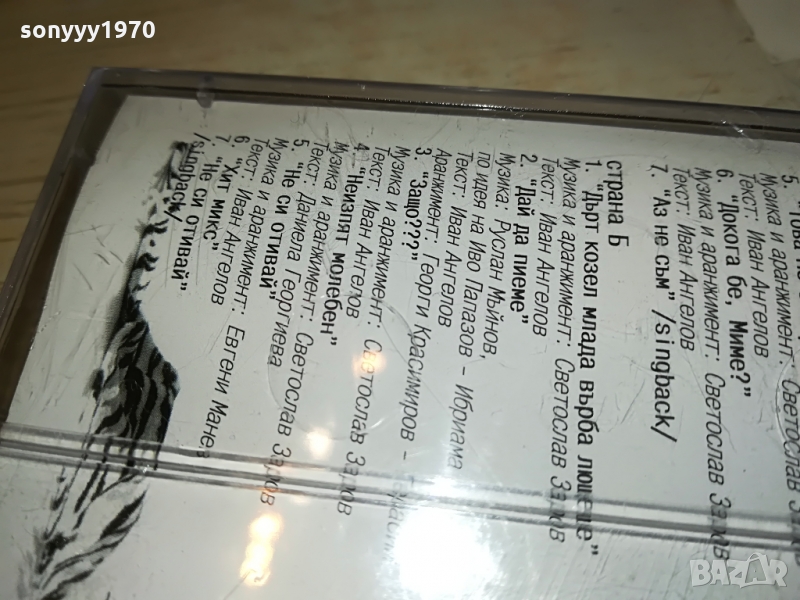 sonyyy1970
5. "Това не
Музика и аранжимент: Светослав
Текст: Иван Ангелов
6. "Докога бе, Миме?"
Музика и аранжимент: Светослав Заров
Текст: Иван Ангелов
7. "Аз не съм" /singback/
страна Б
1. "Дърт козел млада върба люшеше"
Музика и аранжимент: Светослав Заров
Текст: Иван Ангелов
2. "Дай да пиеме"
Музика: Руслан Мъйнов,
по идея на Иво Папазов - Ибриама
Текст: Иван Ангелов
Аранжимент: Георги Красимиров -
3. "Защо???"
Музика и аранжимент: Светослав Заров
Текст: Иван Ангелов
4. "Неизпят молебен"
Музика и аранжимент: Светослав Заров
Текст: Даниела Георгиева
5. "Не си отивай"
Музика и аранжимент: Евгени Манев
Текст: Иван Ангелов
6. "Хит микс"
7. "Не си отивай"
/singback/
BAZAR